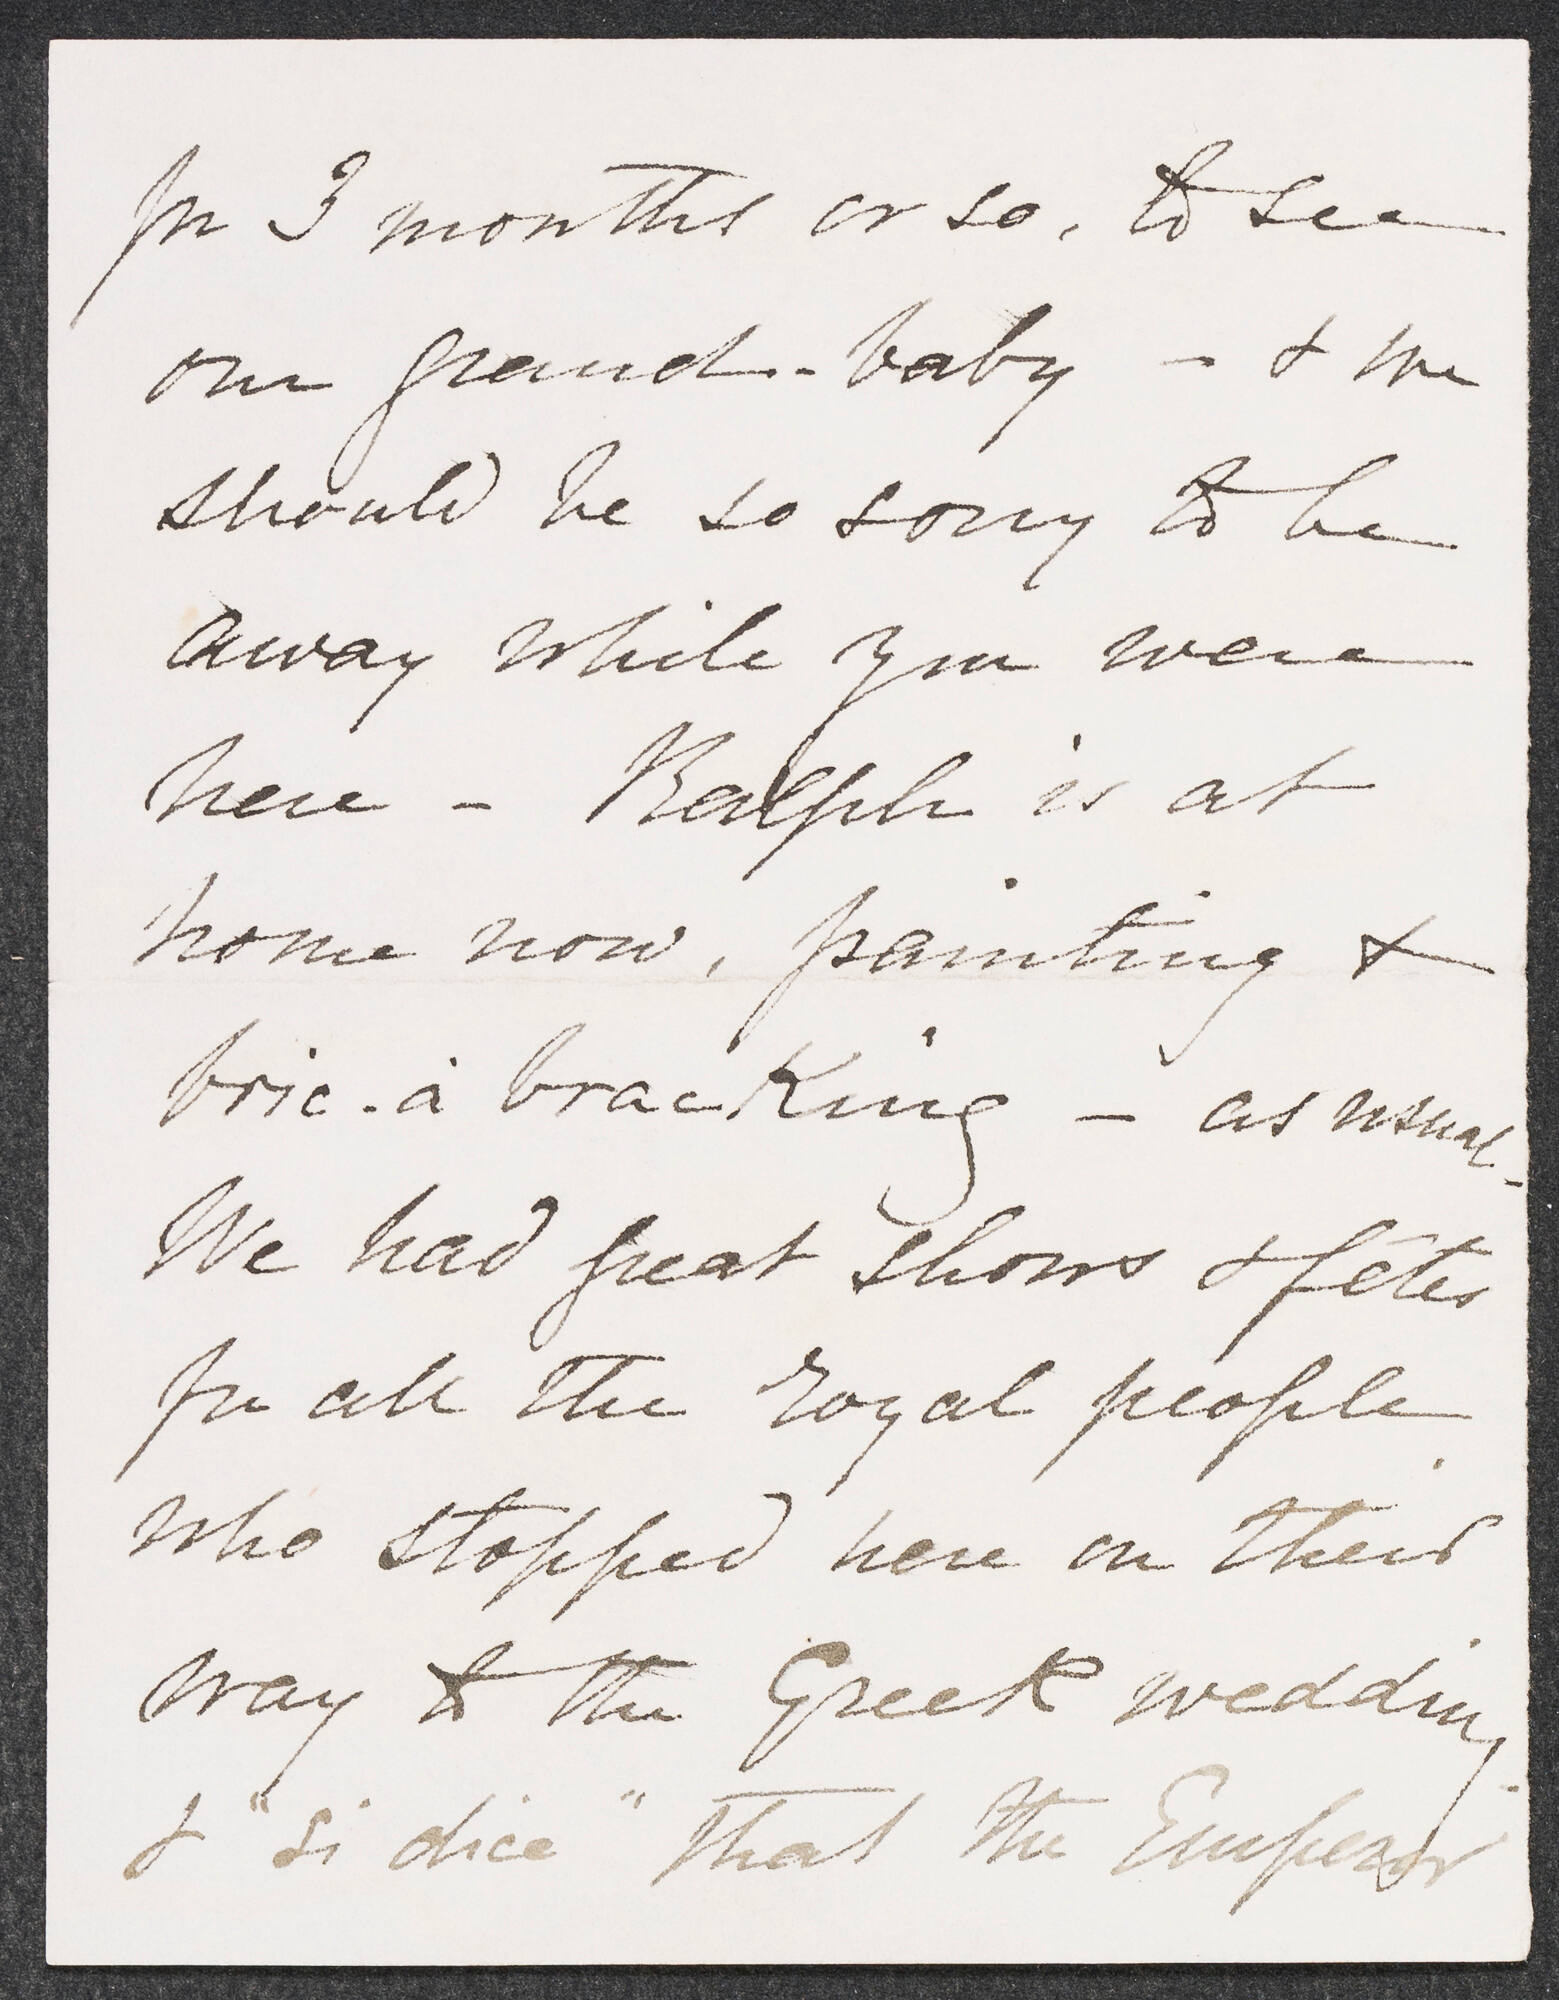 for 3 months or so, to see
our grand-baby - & we
should be so sorry to be
away while you were
here - Ralph is at
home now, painting &
bric-à bracKing - as usual -
We had great shows & fêtes
for all the royal people
who stopped here on their
way to the Greek wedding -
& "si dice" that the Emperor